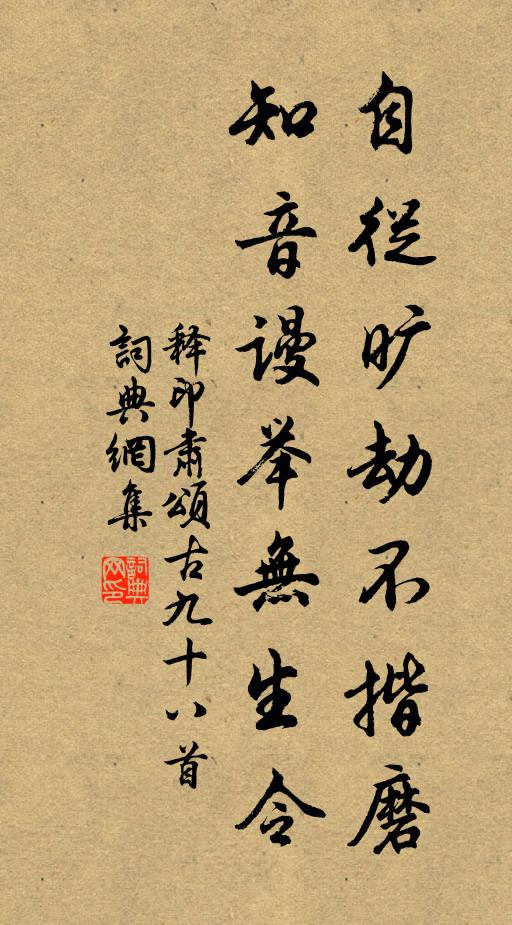 自從旷劫不揩磨
知音謾举無生令
释印肃頌古九十八首
詞典網集
詞典网印